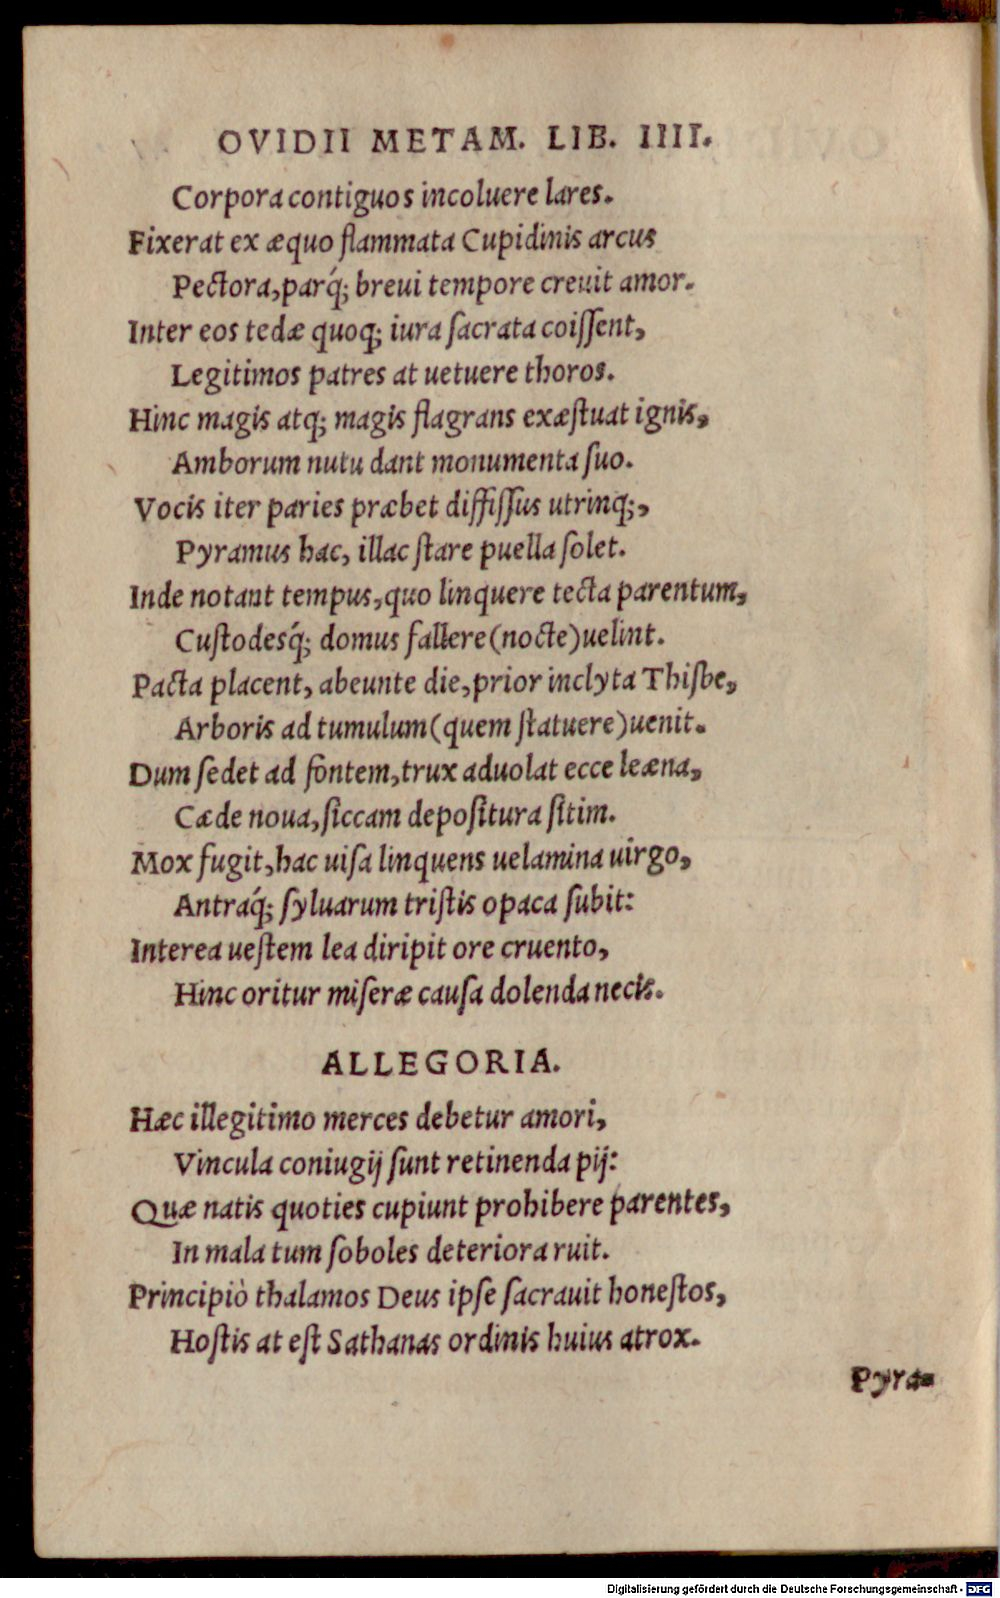 OVIDII METAM. LIB. IIII.
Corpora contiguos incoluere lares.
Fixerat ex æquo flammata Cupidinis arcus
Pectora, parq́; breui tempore creuit amor.
Inter eos tedæ quoq; iura ſacrata coiſſent,
Legitimos patres at uetuere thoros.
Hinc magis atq; magis flagrans exæſtuat ignis,
Amborum nutu dant monumenta ſuo.
Vocis iter paries præbet diffiſſus utrinq;,
Pyramus hac, illac ſtare puella ſolet.
Inde notant tempus, quo linquere tecta parentum,
Cuſtodesq́; domus fallere (nocte) uelint.
Pacta placent, abeunte die, prior inclyta Thiſbe,
Arboris ad tumulum (quem ſtatuere) uenit.
Dum ſedet ad fontem, trux aduolat ecce leæna,
Cæde noua, ſiccam depoſitura ſitim.
Mox fugit, hac uiſa linquens uelamina uirgo,
Antraq́; ſyluarum triſtis opaca ſubit:
Interea ueſtem lea diripit ore cruento,
Hinc oritur miſeræ cauſa dolenda necis.
ALLEGORIA.
Hæc illegitimo merces debetur amori,
Vincula coniugij ſunt retinenda pij:
Quæ natis quoties cupiunt prohibere parentes,
In mala tum ſoboles deteriora ruit.
Principiò thalamos Deus ipſe ſacrauit honeſtos,
Hoſtis at eſt Sathanas ordinis huius atrox.
Pyra-
Digitalisierung gefördert durch die Deutsche Forschungsgemeinschaft - DFG